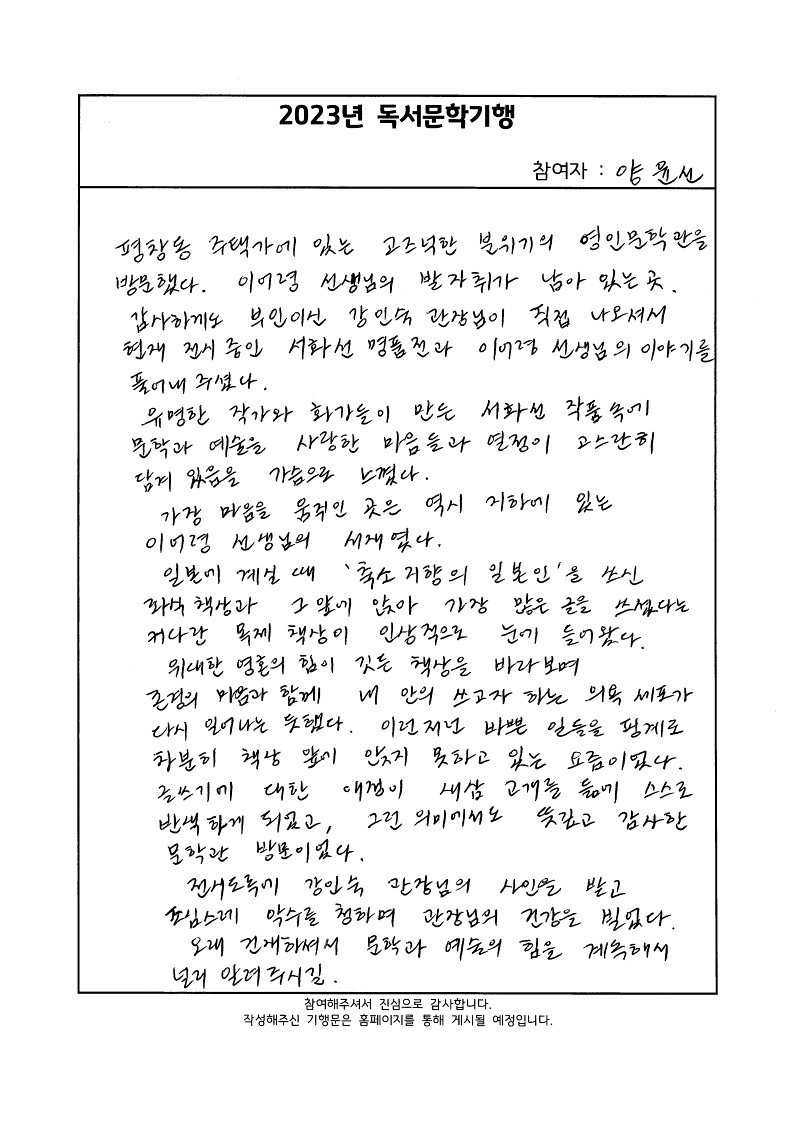 2023년 독서문학기행
참여자 : 양윤선
평창동 주택가에 있는 고즈넉한 분위기의 영인문학관을
방문했다. 이어령 선생님의 발자취가 남아 있는 곳.
감사하게도 부인이신 강인숙 관장님이 직접 나오셔서
현재 전시 중인 서화선 명품전과 이어령 선생님의 이야기를
풀어내 주셨다.
유명한 작가와 화가들이 만든 서화선 작품 속에
문학과 예술을 사랑한 마음들과 열정이 고스란히
담겨 있음을 가슴으로 느꼈다.
가장 마음을 움직인 곳은 역시 지하에 있는
이어령 선생님의 서재였다.
일본에 계실 때 '축소지향의 일본인'을 쓰신
좌식 책상과 그 앞에 앉아 가장 많은 글을 쓰셨다는
커다란 목제 책상이 인상적으로 눈에 들어왔다.
위대한 영혼의 힘이 깃든 책상을 바라보며
존경의 마음과 함께 내 안의 쓰고자 하는 의욕 세포가
다시 일어나는 듯했다. 이런저런 바쁜 일들을 핑계로
차분히 책상 앞에 앉지 못하고 있는 요즘이었다.
글쓰기에 대한 애정이 새삼 고개를 듦에 스스로
반색하게 되었고, 그런 의미에서도 뜻깊고 감사한
문학관 방문이었다.
전시도록에 강인숙 관장님의 사인을 받고
조심스레 악수를 청하며 관장님의 건강을 빌었다.
오래 건재하셔서 문학과 예술의 힘을 계속해서
널리 알려주시길.
참여해주셔서 진심으로 감사합니다.
작성해주신 기행문은 홈페이지를 통해 게시될 예정입니다.